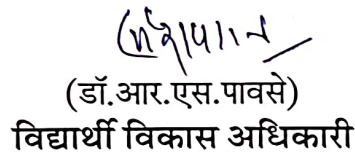 (डॉ.आर.एस.पावसे)
विद्यार्थी विकास अधिकारी